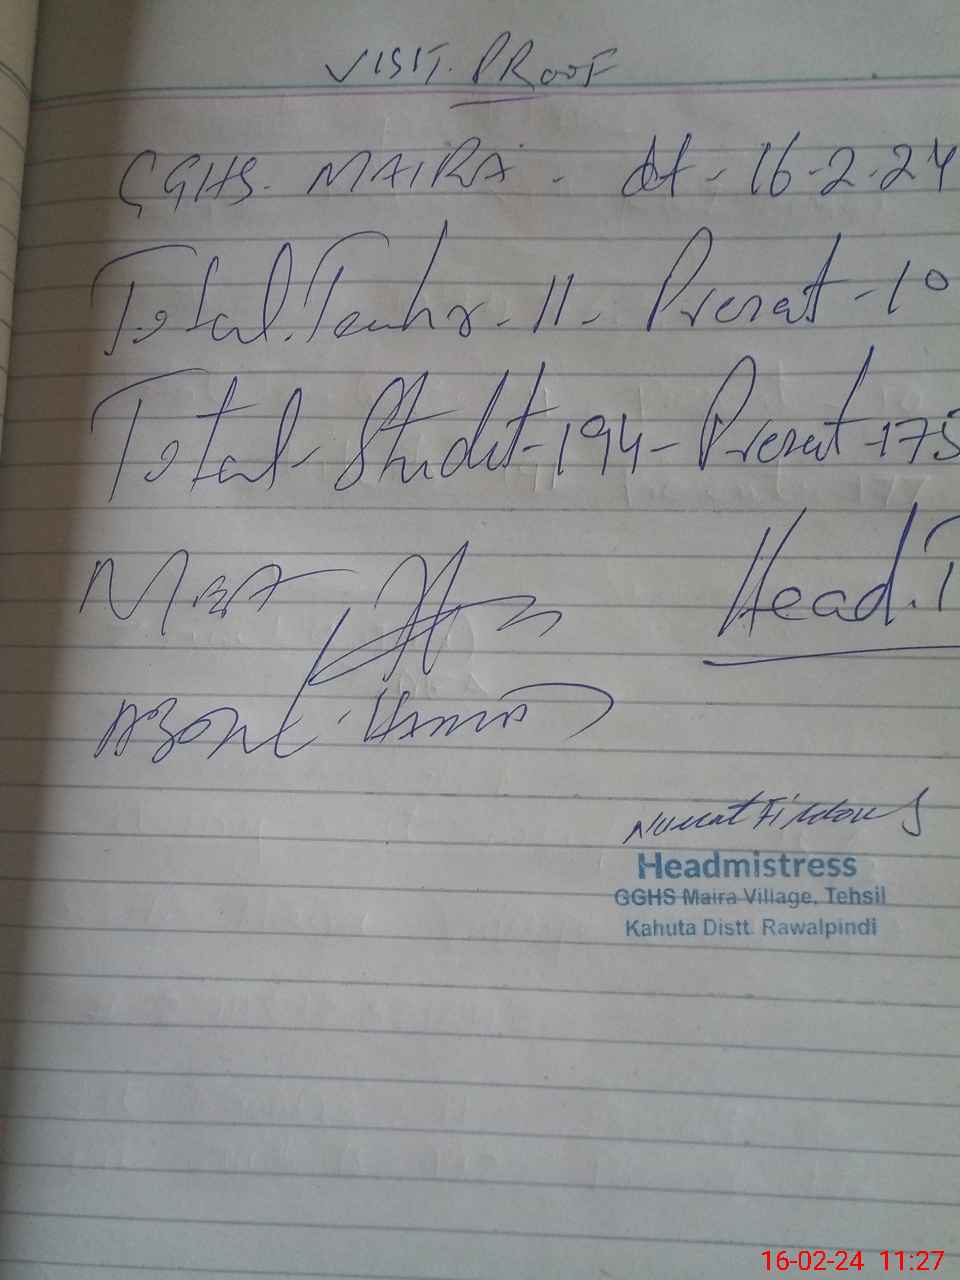 VISIT. PROOF
GGHS. MAIRA. dt - 16-2-24
Total. Teachr - 11 - Present - 10
Total - Studet - 194 - Present - 175
MEA
Head. T
Nusrat Firdous
Headmistress
GGHS Maira Village, Tehsil
Kahuta Distt. Rawalpindi
16-02-24 11:27